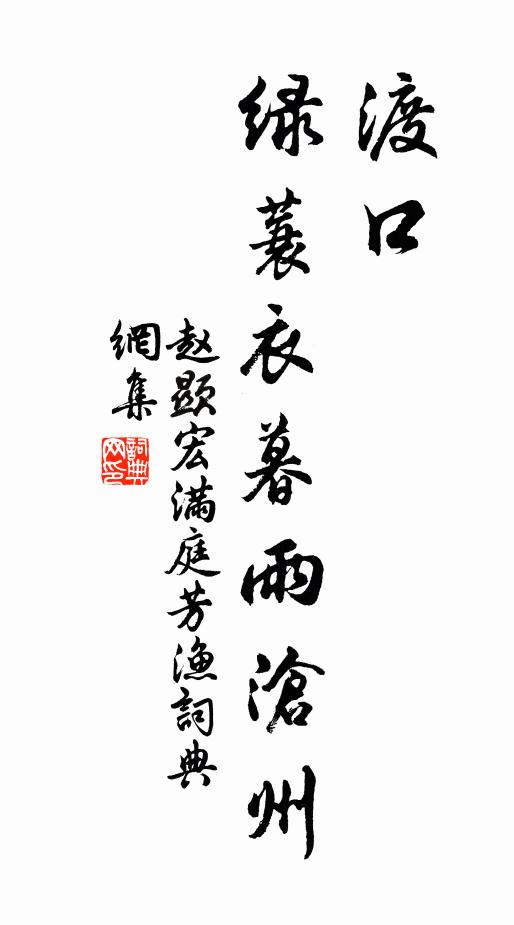 渡口
綠蓑衣暮雨滄州
赵顯宏满庭芳漁詞典
網集
詞典网印